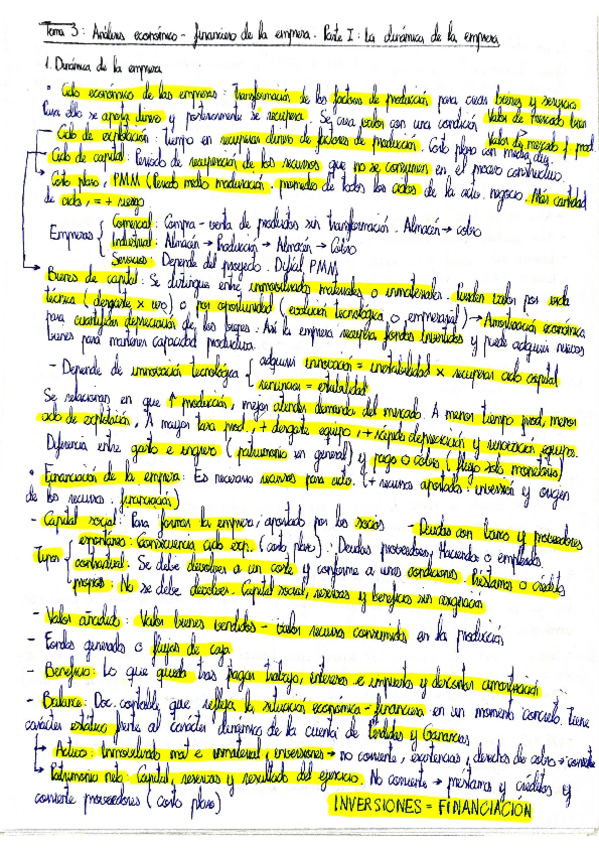 Tema 3: Análisis económico-financiero de la empresa. Parte I: La dinámica de la empresa
1. Dinámica de la empresa
• Ciclo económico de las empresas: Transformación de los factores de producción para crear bienes y servicios
Para ello se aporta dinero y posteriormente se recupera. Se crea valor con una condición Valor de mercado bien
Valor de mercado f. prod.
Ciclo de explotación: tiempo en recuperar dinero de factores de producción. Corto plazo con media
Ciclo de capital: Periodo de recuperación de los recursos que no se consumen en el proceso constructivo.
Corto plazo, PMM (Periodo medio maduración, promedio de todos los ciclos de la activ. negocio. Más cantidad
de ciclo, = + riesgo
Empresas { Comercial: Compra-venta de productos sin transformación. Almacén → cobro
Industrial: Almacén → Producción → Almacén → Cobro
Servicios: Depende del proyecto. Difícil PMM
Bienes de capital: Se distingue entre inmovilizado materiales o inmateriales. Pierden valor por vida
técnica (desgaste x uso) o por oportunidad (evolución tecnológica o empresarial) → Amortización económica
para cuantificar depreciación de los bienes. Así la empresa recupera fondos invertidos y puede adquirir nuevos
bienes para mantener capacidad productiva.
- Depende de innovación tecnológica { adquirir innovación = inestabilidad x recuperar ciclo capital
renunciar = estabilidad
Se relacionan en que ↑ producción, mejor atender demanda del mercado. A menor tiempo prod, menor
ciclo de explotación, A mayor tasa prod., + desgaste equipo, + rápida depreciación y renovación equipo.
Diferencia entre gasto e ingreso (patrimonio en general) y pago o cobro (flujo solo monetario)
• Financiación de la empresa: Es necesario recursos para activ. (+ recursos aportados: inversión y origen
de los recursos: financiación)
- Capital social: Para formar la empresa, aportado por los socios - Deudas con banco y proveedores
Tipos { espontánea: Consecuencia ciclo exp. (corto plazo): Deudas proveedores, Hacienda o empleados
contractual: Se debe devolver a un coste y conforme a unas condiciones. Préstamos o créditos
propios: No se debe devolver. Capital social, reservas y beneficios sin
- Valor añadido: Valor bienes vendidos - valor recursos consumidos en la producción
- Fondos generados o flujos de caja
- Beneficio: Lo que queda tras pagar trabajo, intereses e impuestos y descontar amortización
- Balance: Doc. contable que refleja la situación económica-financiera en un momento concreto. Tiene
carácter estático frente al carácter dinámico de la cuenta de Pérdidas y Ganancias
↳ Activo: Inmovilizado mat e inmaterial, inversiones → no corriente, existencias, derechos de cobro → corriente
↳ Patrimonio neto: capital, reservas y resultado del ejercicio. No corriente → préstamos y créditos y
corriente proveedores (corto plazo)
INVERSIONES = FINANCIACIÓN